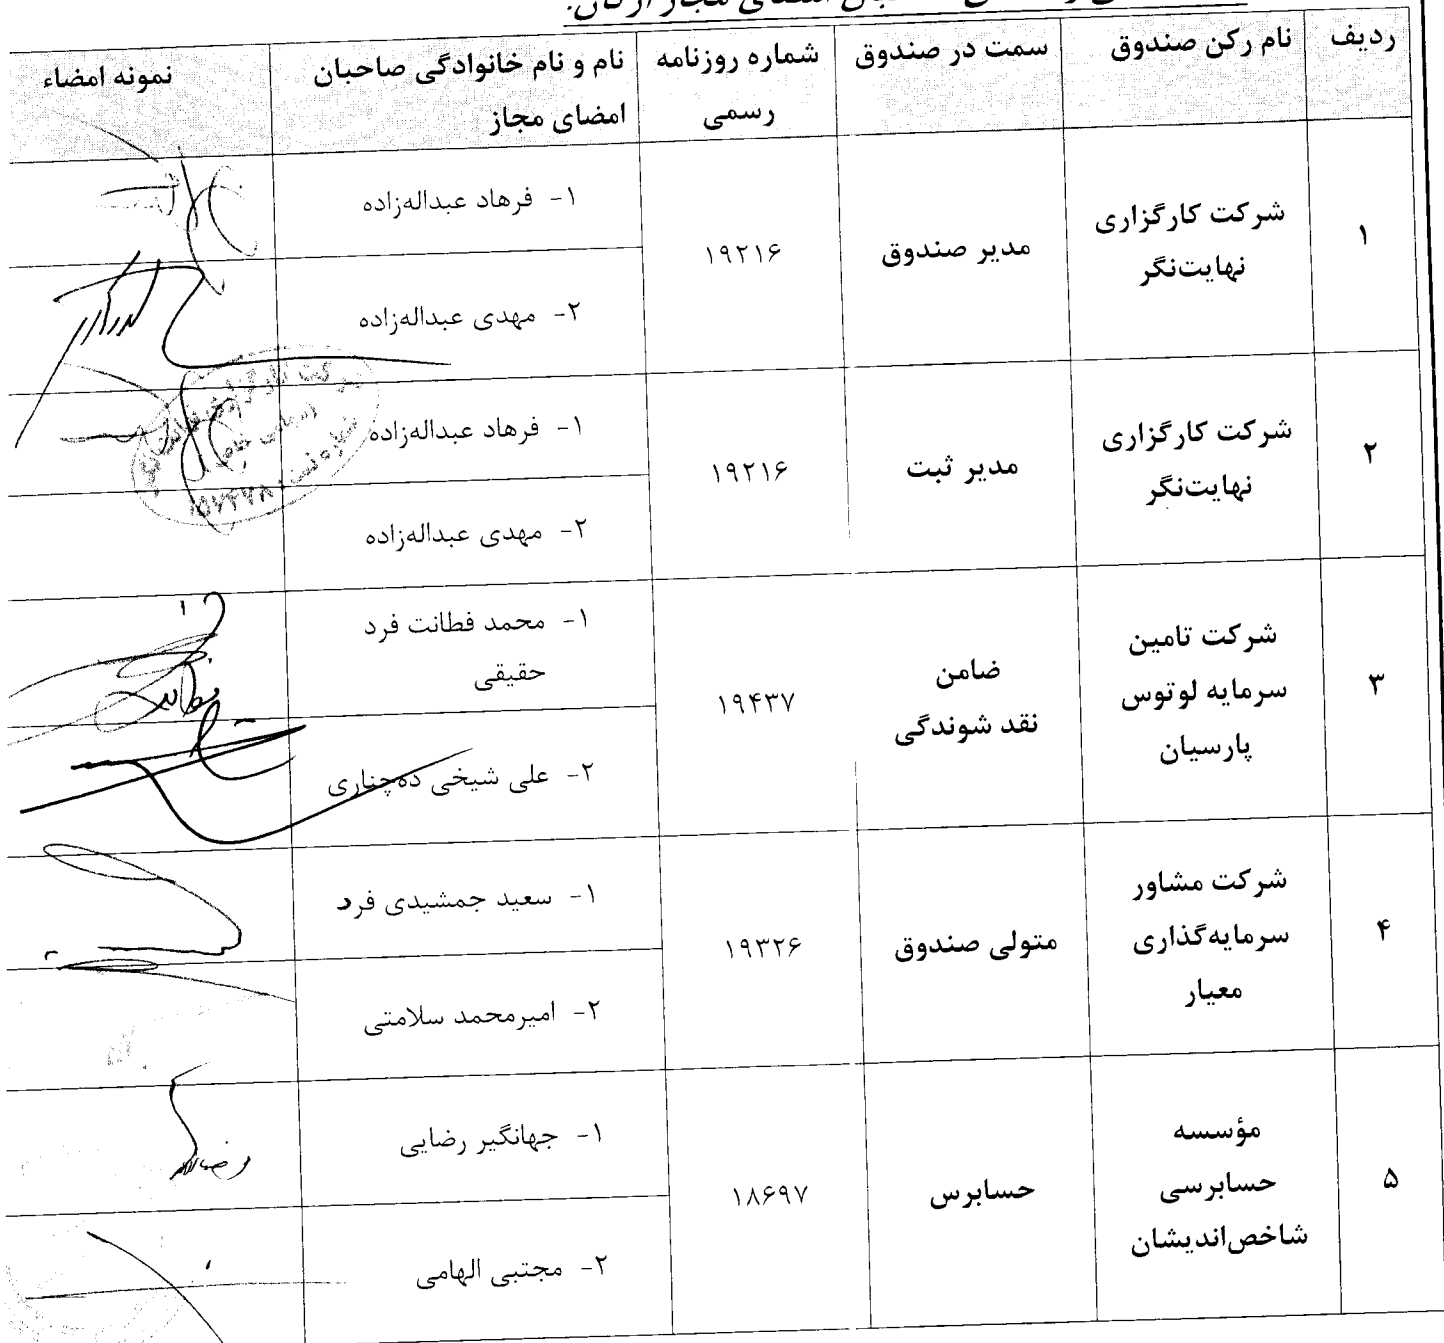 صاحبان امضای مجاز ارکان:
ردیف نام رکن صندوق سمت در صندوق شماره روزنامه رسمی نام و نام خانوادگی صاحبان امضای مجاز نمونه امضاء
۱ شرکت کارگزاری نهایت‌نگر مدیر صندوق ۱۹۲۱۶
۱- فرهاد عبداله‌زاده
۲- مهدی عبداله‌زاده
۲ شرکت کارگزاری نهایت‌نگر مدیر ثبت ۱۹۲۱۶
۱- فرهاد عبداله‌زاده
۲- مهدی عبداله‌زاده
۳ شرکت تامین سرمایه لوتوس پارسیان ضامن نقد شوندگی ۱۹۴۳۷
۱- محمد فطانت فرد حقیقی
۲- علی شیخی ده‌چناری
۴ شرکت مشاور سرمایه‌گذاری معیار متولی صندوق ۱۹۳۲۶
۱- سعید جمشیدی فرد
۲- امیرمحمد سلامتی
۵ مؤسسه حسابرسی شاخص‌اندیشان حسابرس ۱۸۶۹۷
۱- جهانگیر رضایی
۲- مجتبی الهامی